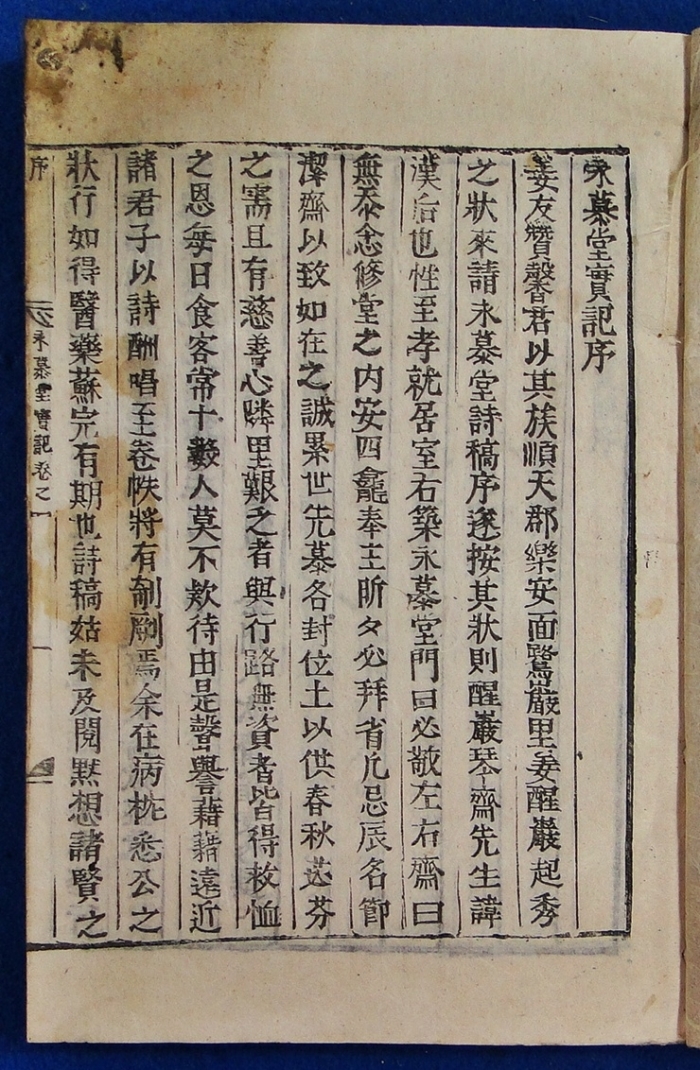 永慕堂實記序
姜友贊馨君以其族順天郡樂安面鷺巖里姜醒巖起秀
之狀來請永慕堂詩稿序遂按其狀則醒巖琴齋先生諱
漢后也性至孝就居室右築永慕堂門曰必敬左右齋曰
無忝念修堂之內安四龕奉主昕夕必拜省凡忌辰名節
潔齋以致如在之誠累世先墓各封位土以供春秋苾芬
之需且有慈善心隣里艱乏者與行路無資者皆得救恤
之恩每日食客常十數人莫不欵待由是聲譽藉藉遠近
諸君子以詩酬唱至卷帙將有剞劂焉余在病枕悉公之
狀行如得醫藥蘇完有期也詩稿姑未及閱默想諸賢之
序
永慕堂實記卷之一
一